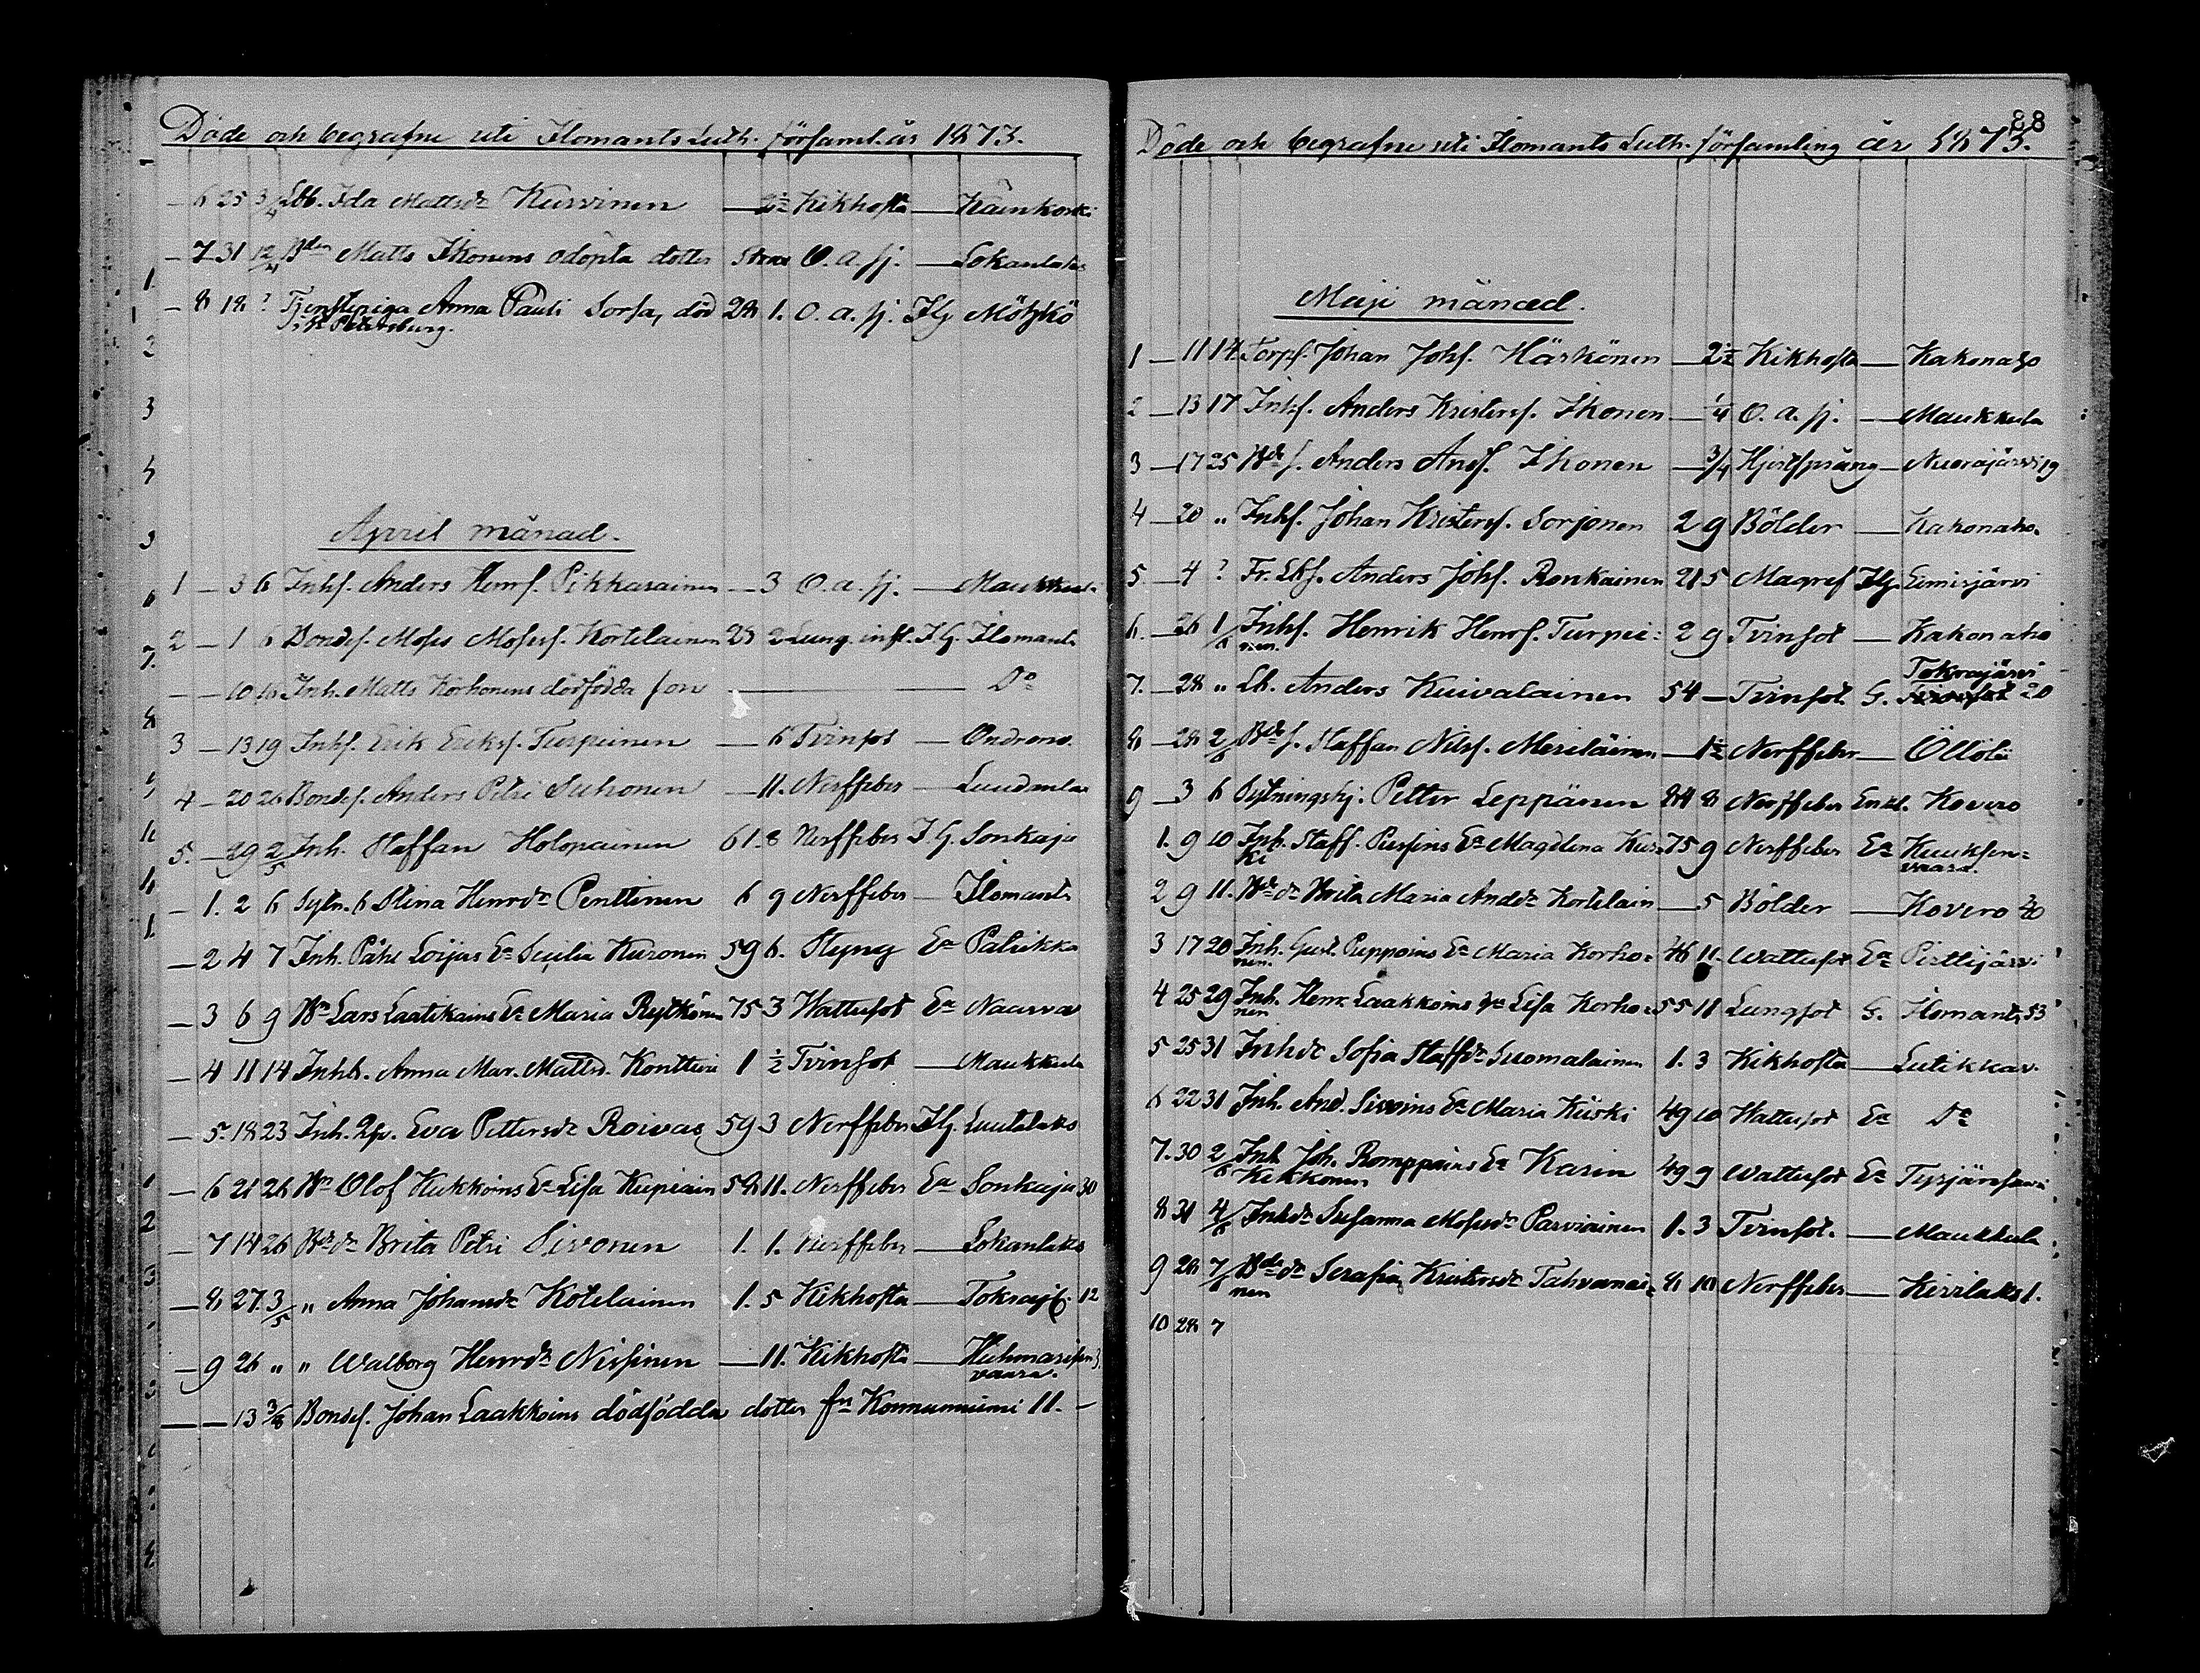 Döde och begrafne uti Ilomants Luth. församl. år 1873.
6 25 3/4 Lbb. Ida Mattsdr Kurvinen — 2½ Kikhosta — Käenkoski
7 31 12/4 Bden Matts Ikonens odöpta dotter Strax O. a. sj. — Sokanlaks
8 18 ? Tjenstepiga Anna Pauli Sorsa, död 28 1. O. a. sj. Ilg Mötzkö
i St Petersburg.
April månad.
1 — 3 6 Inhs. Anders Henrs. Pikkarainen — 3 O. a. sj. — Maukkula
2 — 1 6 Bondes. Moses Moses. Kortelainen 28 2 Lung. infl. I.G. Ilomants
— — 10 16 Inh. Matts Korhonens dödfödda son — — Do
3 — 13 19 Inhs. Erik Eriks. Turpeinen — 6 Tvinsot — Ondronv.
4 — 20 26 Bondes. Anders Petri Suhonen — 11. Nerffeber — Luudanlax
5. — 29 2/5 Inh. Staffan Holopainen 61. 8 Nerffeber I.G. Sonkaja
— 1. 2 6 Sytn. b Stina Henrdr Penttinen 6 9 Nerffeber — Ilomants
— 2 4 7 Inh. Påhl Loijas Ea Secilia Kuronen 59 6. Styng Ea Palukka
— 3 6 9 Bn Lars Laatikains Ea Maria Rytkönen 75 3 Wattusot Ea Naarva
— 4 11 14 Inhb. Anna Mar. Mattsd. Kontturi 1 ½ Tvinsot — Maukkula
— 5. 18 23 Inh. Qv. Eva Pettersdr Roivas 59 3 Nerffeber Ilg. Luutalaks
— 6 21 26 Bn Olof Hukkoins Ea Lisa Kupiain 58 11. Nerffeber Ea Sonkaja 30
— 7 14 26 Bdedr Brita Petri Sivonen 1. 1. Nerffeber — Sokanlaks
— 8 27 3/5 " Anna Johansdr Kotelainen 1. 5 Kikhosta — Tokrajä. 12
— 9 26 " " Walborg Henrdr Nissinen — 11. Kikhosta — Huhmarisen 3.
vaara.
— — 13 3/8 Bondes. Johan Laakkoins dödfödda dotter frn Konnunniemi 11. —
88
Döde och begrafne uti Ilomants Luth. församling år 1873.
Maji månad.
1 — 11 14 Torps. Johan Johs. Härkönen — 2½ Kikhosta — Kakonaho
2 — 13 17 Inhs. Anders Kristers. Ikonen — ¼ O. a. sj. — Maukkula
3 — 17 25 Bde s. Anders Ands. Ikonen — ¾ Hjertsprång — Nuorajärvi 19
4 — 20 " Inhs. Johan Kristers. Sorjonen 2 9 Bölder — Kakonaho.
5 — 4 ? Fr. Lbs. Anders Johs. Ronkainen 21 5 Magref Ilg. Eimisjärvi
6. — 26 1/6 Inhs. Henrik Henrs. Turpei= 2 9 Tvinsot — Kakonaho
nen.
7. — 28 " Lb. Anders Kuivalainen 54 — Tvinsot G. Tokrajärvi 20
8 — 28 2/6 Bde s. Staffan Nils. Meriläinen — 1½ Nerffeber — Öllölä
9 — 3 6 Sytningshj: Petter Leppänen 84 8 Nerffeber Enkl. Kovero
1. 9 10 Inh. Staff. Pursins Ea Magdlena Kur= 75 9 Nerffeber Ea Kuuksen=
ki vaara.
2 9 11. Bdedr Brita Maria Anddr Kortelain — 5 Bölder — Kovero 20
3 17 20 Inh. Gust. Puppoins Ea Maria Korho= 46 11. Wattusot Ea Pirttijärvi
nen.
4 25 29 Inh. Henr. Laakkoins Ea Lisa Korho= 55 11 Lungsot G. Ilomants 53
nen
5 25 31 Inhdr Sofia Staffdr Suomalainen 1. 3 Kikhosta — Lutikkav.
6 22 31 Inh. And. Sivoins Ea Maria Kiiski 49 10 Wattusot Ea Do
7. 30 2/6 Inh. Joh. Romppains Ea Karin 49 9 Wattusot Ea Tyrjänsaari
Kekkonen
8 31 4/6 Inhdr Susanna Mosesdr Parviainen 1. 3 Tvinsot. — Maukkula
9 28 7/6 Bdedr Serafia Kristersdr Tahvanai= 8 10 Nerffeber — Kerilaks 1.
nen
10 28 7